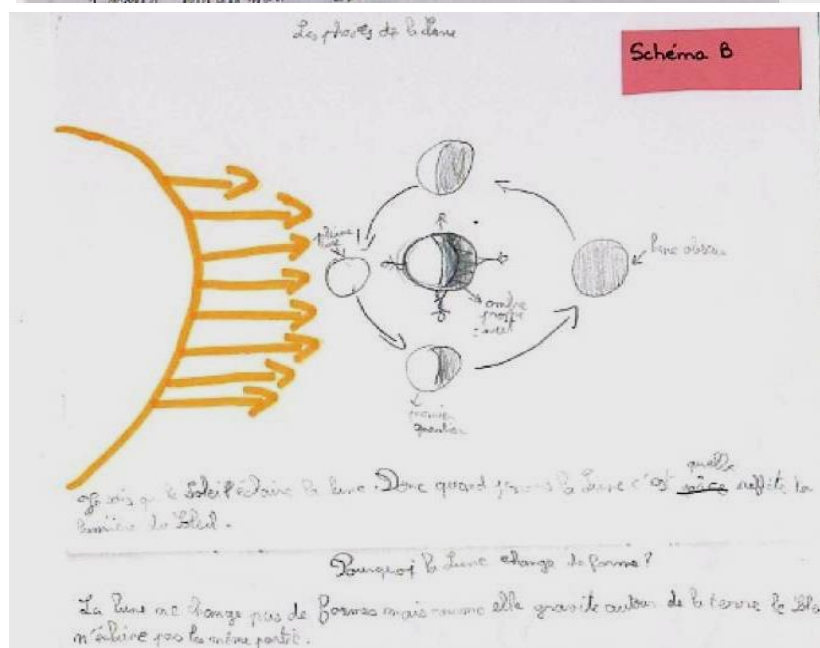 Les phases de la Lune
Schéma B
pleine
lune
lune obscu
ombre
propre
premier
quartier
Je sais que le Soleil éclaire la lune. Donc quand je vois la Lune c'est quelle reflète la
lumière du Soleil.
Pourquoi la Lune change de forme ?
La lune ne change pas de formes mais comme elle gravite autour de la terre le Sole
n'éclaire pas la même partie.